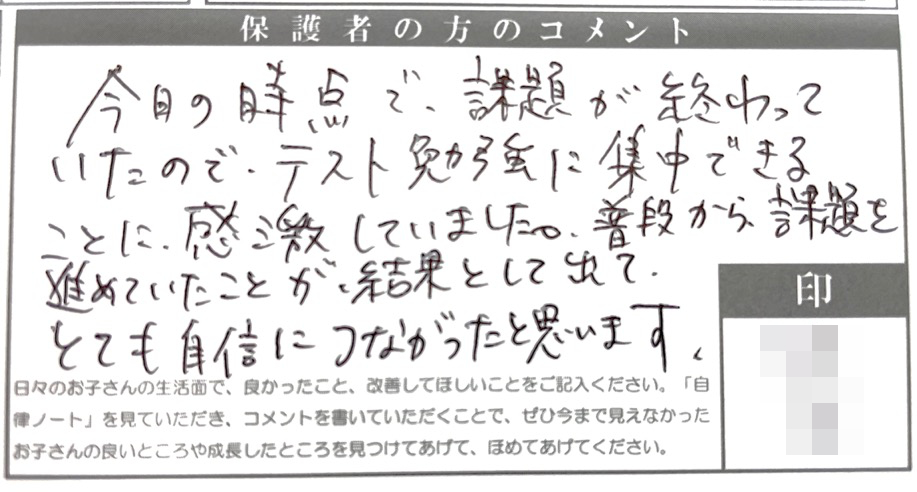 保護者の方のコメント
今日の時点で、課題が終わって
いたので、テスト勉強に集中できる
ことに、感激していました。普段から、課題を
進めていたことが、結果として出て、
とても自信につながったと思います。
印
日々のお子さんの生活面で、良かったこと、改善してほしいことをご記入ください。「自
律ノート」を見ていただき、コメントを書いていただくことで、ぜひ今まで見えなかった
お子さんの良いところや成長したところを見つけてあげて、ほめてあげてください。